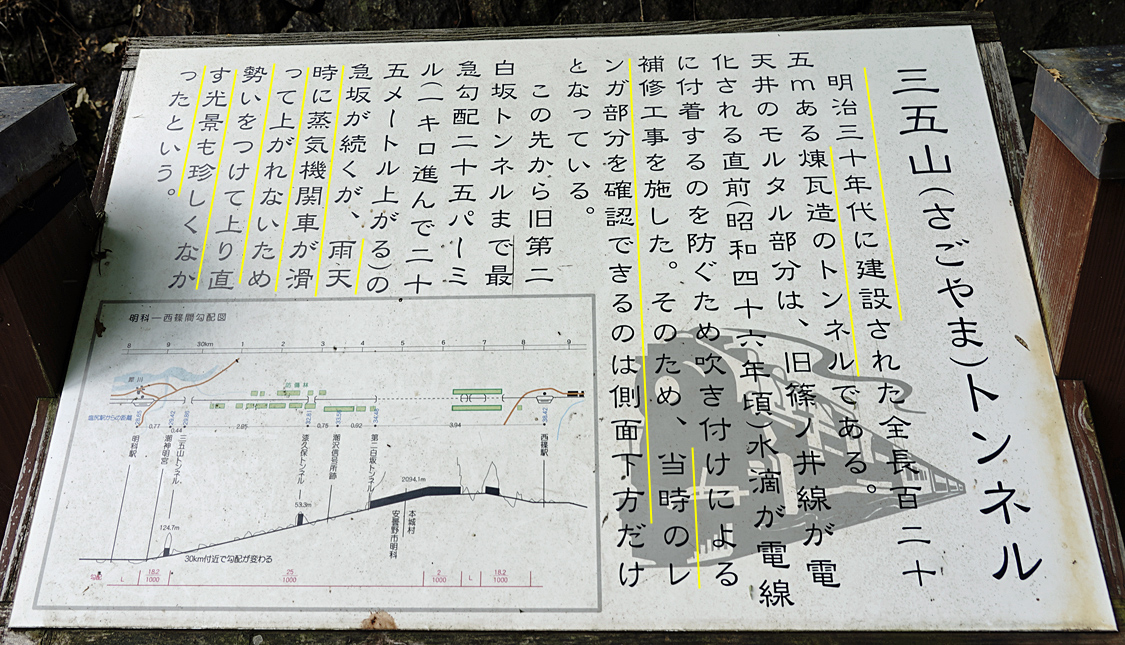 三五山(さごやま)トンネル
明治三十年代に建設された全長百二十
五mある煉瓦造のトンネルである。
天井のモルタル部分は、旧篠ノ井線が電
化される直前(昭和四十六年頃)水滴が電線
に付着するのを防ぐため吹き付けによる
補修工事を施した。そのため、当時のレ
ンガ部分を確認できるのは側面下方だけ
となっている。
この先から旧第二
白坂トンネルまで最
急勾配二十五パーミ
ル(一キロ進んで二十
五メートル上がる)の
急坂が続くが、雨天
時に蒸気機関車が滑
って上がれないため
勢いをつけて上り直
す光景も珍しくなか
ったという。
明科―西條間勾配図
8 9 30km 1 2 3 4 5 6 7 8 9
犀川
防備林
塩尻駅からの距離
0.77
0.44
2.85
0.75
0.92
3.94
明科駅
潮神明宮
三五山トンネル
漆久保トンネル
潮沢信号所跡
第二白坂トンネル
西條駅
124.7m
53.3m
2094.1m
本城村
安曇野市明科
30km付近で勾配が変わる
勾配
L
18.2/1000
25/1000
2/1000
L
18.2/1000